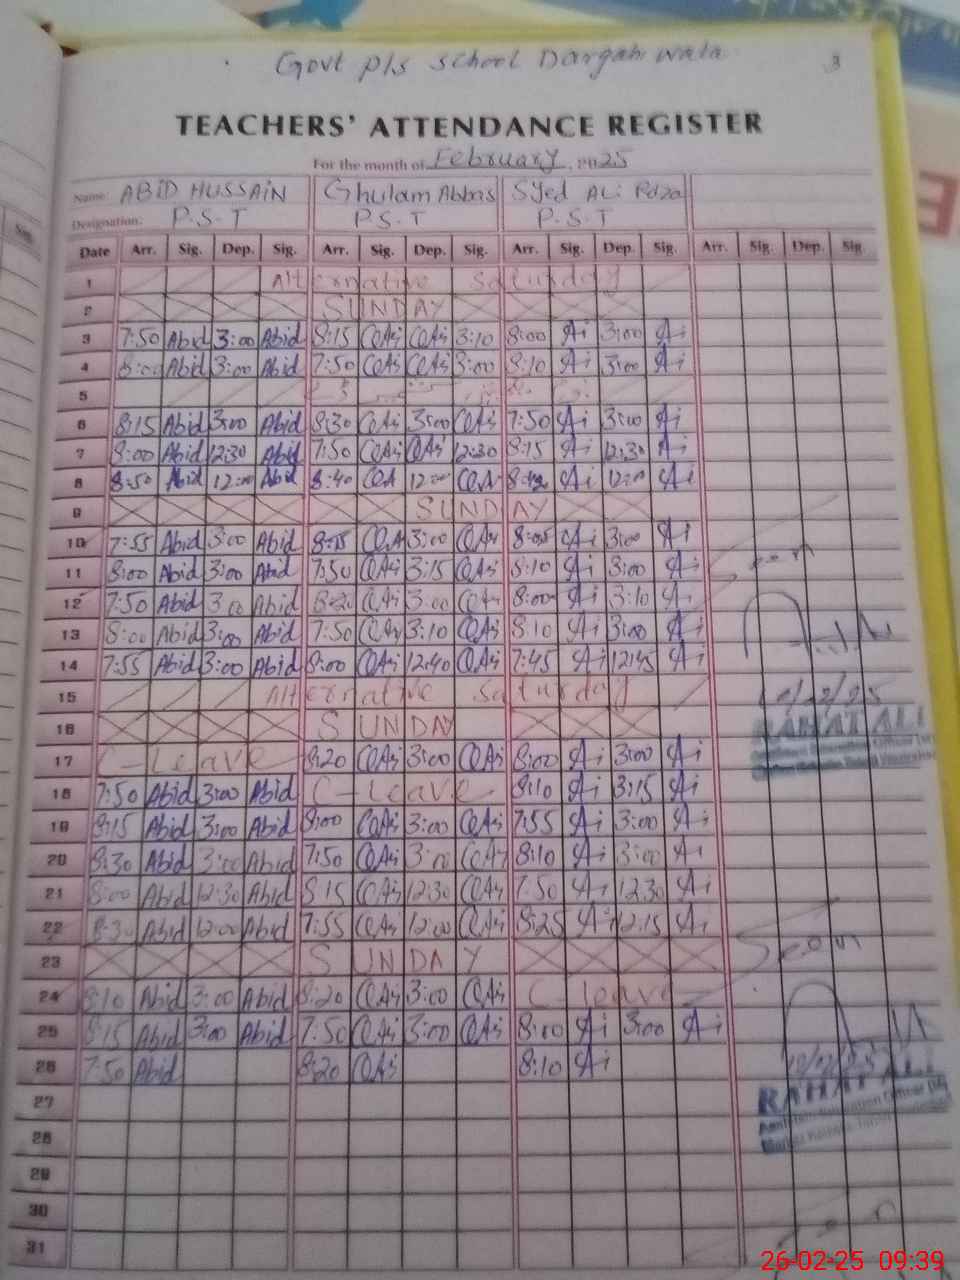 Govt p/s school Dargah wala
3
TEACHERS' ATTENDANCE REGISTER
For the month of February, 2025
Name: ABID HUSSAIN Ghulam Abbas Syed ALi Raza
Designation: P.S.T P.S.T P.S.T
Date Arr. Sig. Dep. Sig. Arr. Sig. Dep. Sig. Arr. Sig. Dep. Sig. Arr. Sig. Dep. Sig.
1 Alternative Saturday
2 SUNDAY
3 7:50 Abid 3:00 Abid 8:15 3:10 8:00 Ai 3:00 Ai
4 8:00 Abid 3:00 Abid 7:50 3:00 8:10 Ai 3:00 Ai
5
6 8:15 Abid 3:00 Abid 8:30 3:00 7:50 Ai 3:00 Ai
7 8:00 Abid 12:30 Abid 7:50 12:30 8:15 Ai 12:30 Ai
8 8:50 Abid 12:00 Abid 8:40 12:00 Ai 12:00 Ai
9 SUNDAY
10 7:55 Abid 3:00 Abid 3:00 Ai 3:00 Ai
11 8:00 Abid 3:00 Abid 7:50 3:15 8:10 Ai 3:00 Ai
12 7:50 Abid 3:00 Abid 8:20 3:00 8:00 Ai 3:10 Ai
13 8:00 Abid 3:00 Abid 7:50 3:10 8:10 Ai 3:00 Ai
14 7:55 Abid 3:00 Abid 8:00 12:40 7:45 Ai 12:45 Ai
15 Alternative Saturday
16 SUNDAY
17 C-Leave 8:20 3:00 8:00 Ai 3:00 Ai
18 7:50 Abid 3:00 Abid C-Leave 8:10 Ai 3:15 Ai
19 8:15 Abid 3:00 Abid 8:00 3:00 7:55 Ai 3:00 Ai
20 8:30 Abid 3:00 Abid 7:50 3:00 8:10 Ai 3:00 Ai
21 8:00 Abid 12:30 Abid 8:15 12:30 7:50 Ai 12:30 Ai
22 8:30 Abid 12:00 Abid 7:55 12:00 8:25 Ai 12:15 Ai
23 SUNDAY
24 8:10 Abid 3:00 Abid 8:20 3:00 C-leave
25 8:15 Abid 3:00 Abid 7:50 3:00 8:00 Ai 3:00 Ai
26 7:50 Abid 8:20 8:10 Ai
27
28
29
30
31
Seen
RAHAT ALI
Seen
RAHAT ALI
26-02-25 09:39